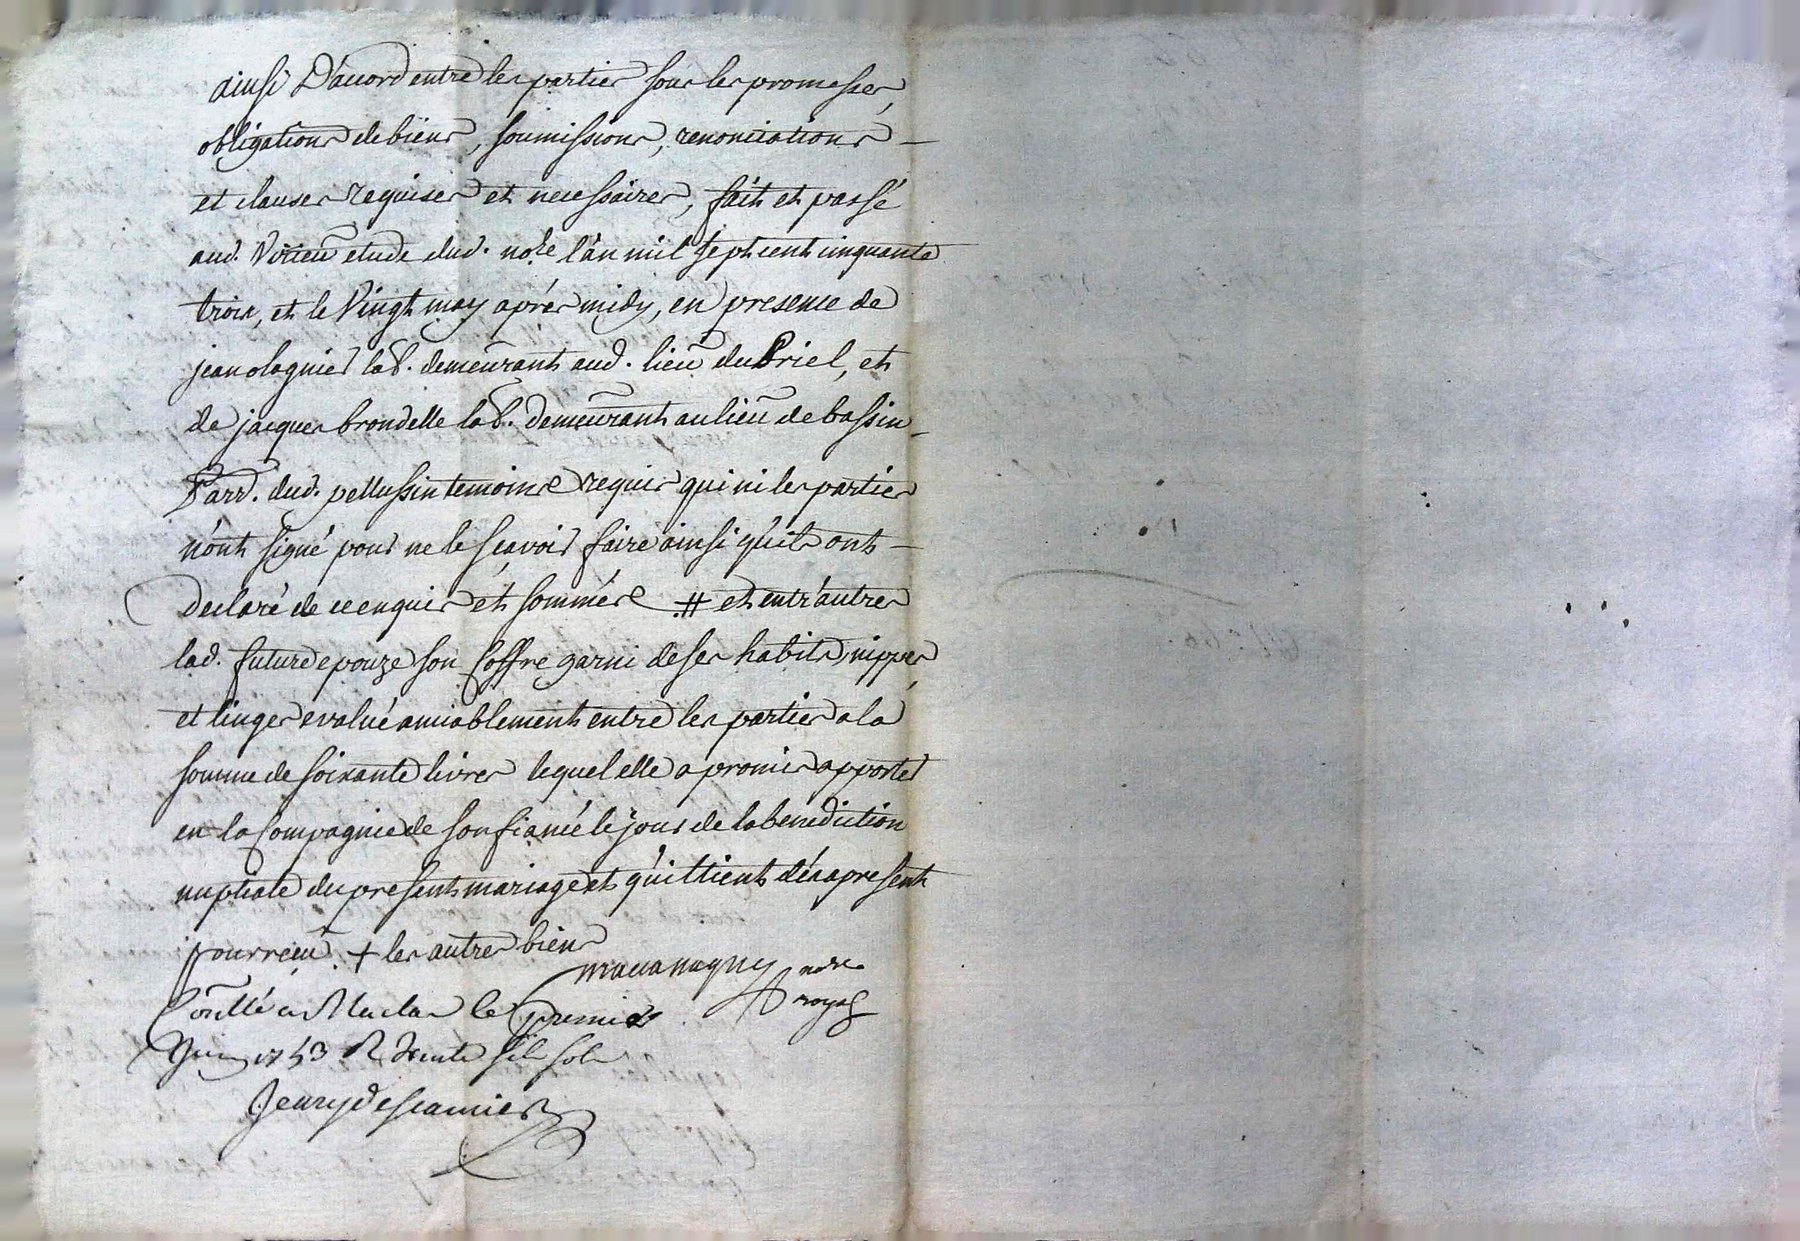 ainsi D'accord entre les parties sous les promesses,
obligations de biens, soumissions, renonciations –
et clauses requises et necessaires, fait et passé
aud. Virieu etude dud. nore l'an mil sept cent cinquante
trois, et le Vingt may aprés midy, en presence de
jean olagnier lab. demeurant aud. lieu du Briel, et
de jacques brondelle lab. demeurant au lieu de bassin
parr. dud. pellussin temoins requis qui ni les parties
n'ont signé pour ne le sçavoir faire ainsi qu'ils ont –
declaré de ce enquis et sommés # et entr'autres
lad. future epouze son Coffre garni de ses habits, nippes,
et linges evalué amiablement entre les parties a la
somme de soixante livres lequel elle a promis apporter
en la Compagnie de son fiancé le jour de la benediction
nuptiale du present mariage et qu'il tient dés a present
pour reçu + les autres biens
nore
royal
Conllé a Maclas le premier
Juin 1753 R trente six sols